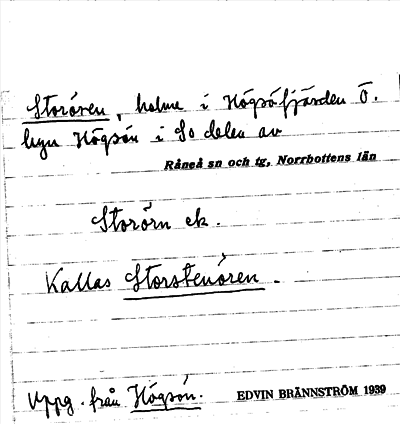 Storören, holme i Högsöfjärden Ö.
byn Högsön i So delen av
Råneå sn och tg, Norrbottens län
Storörn ek.
Kallas Storstenören.
Uppg. från Högsön.
EDVIN BRÄNNSTRÖM 1939